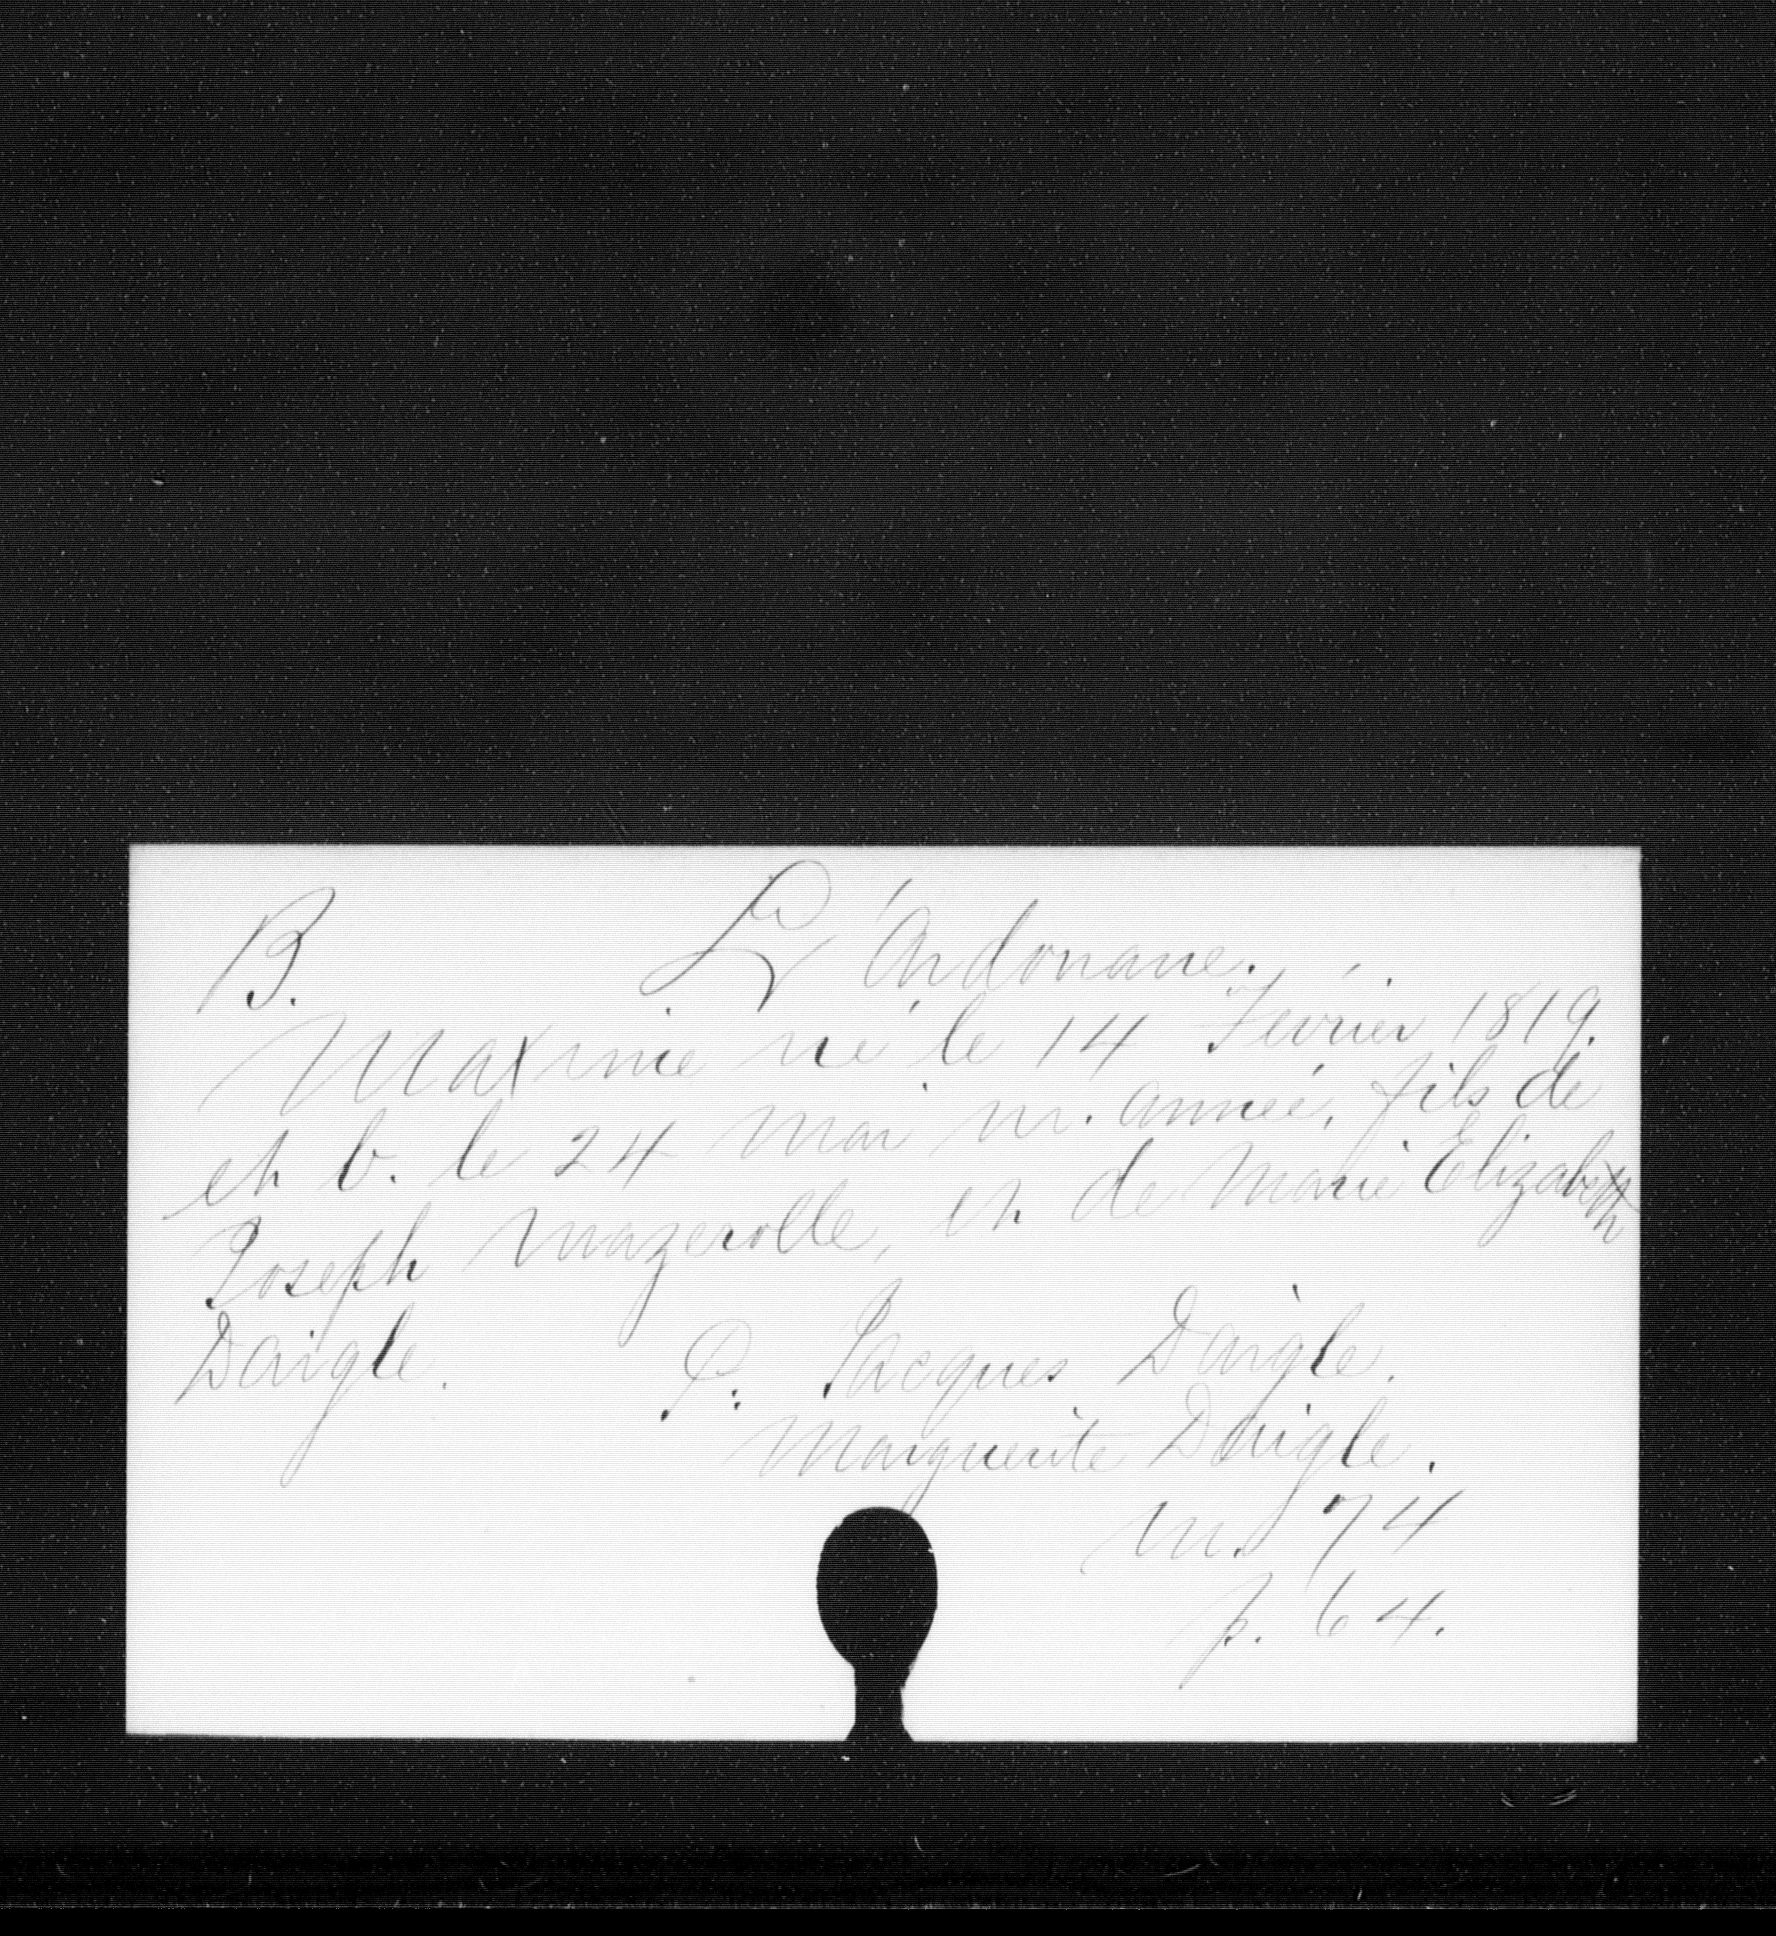 B. L'Ardonane.
Maxime né le 14 Février 1819.
et b. le 24 Mai m. année, fils de
Joseph Mazerolle, et de Marie Elizabeth
Daigle. P: Jacques Daigle.
Marguerite Daigle.
M. 74
p. 64.